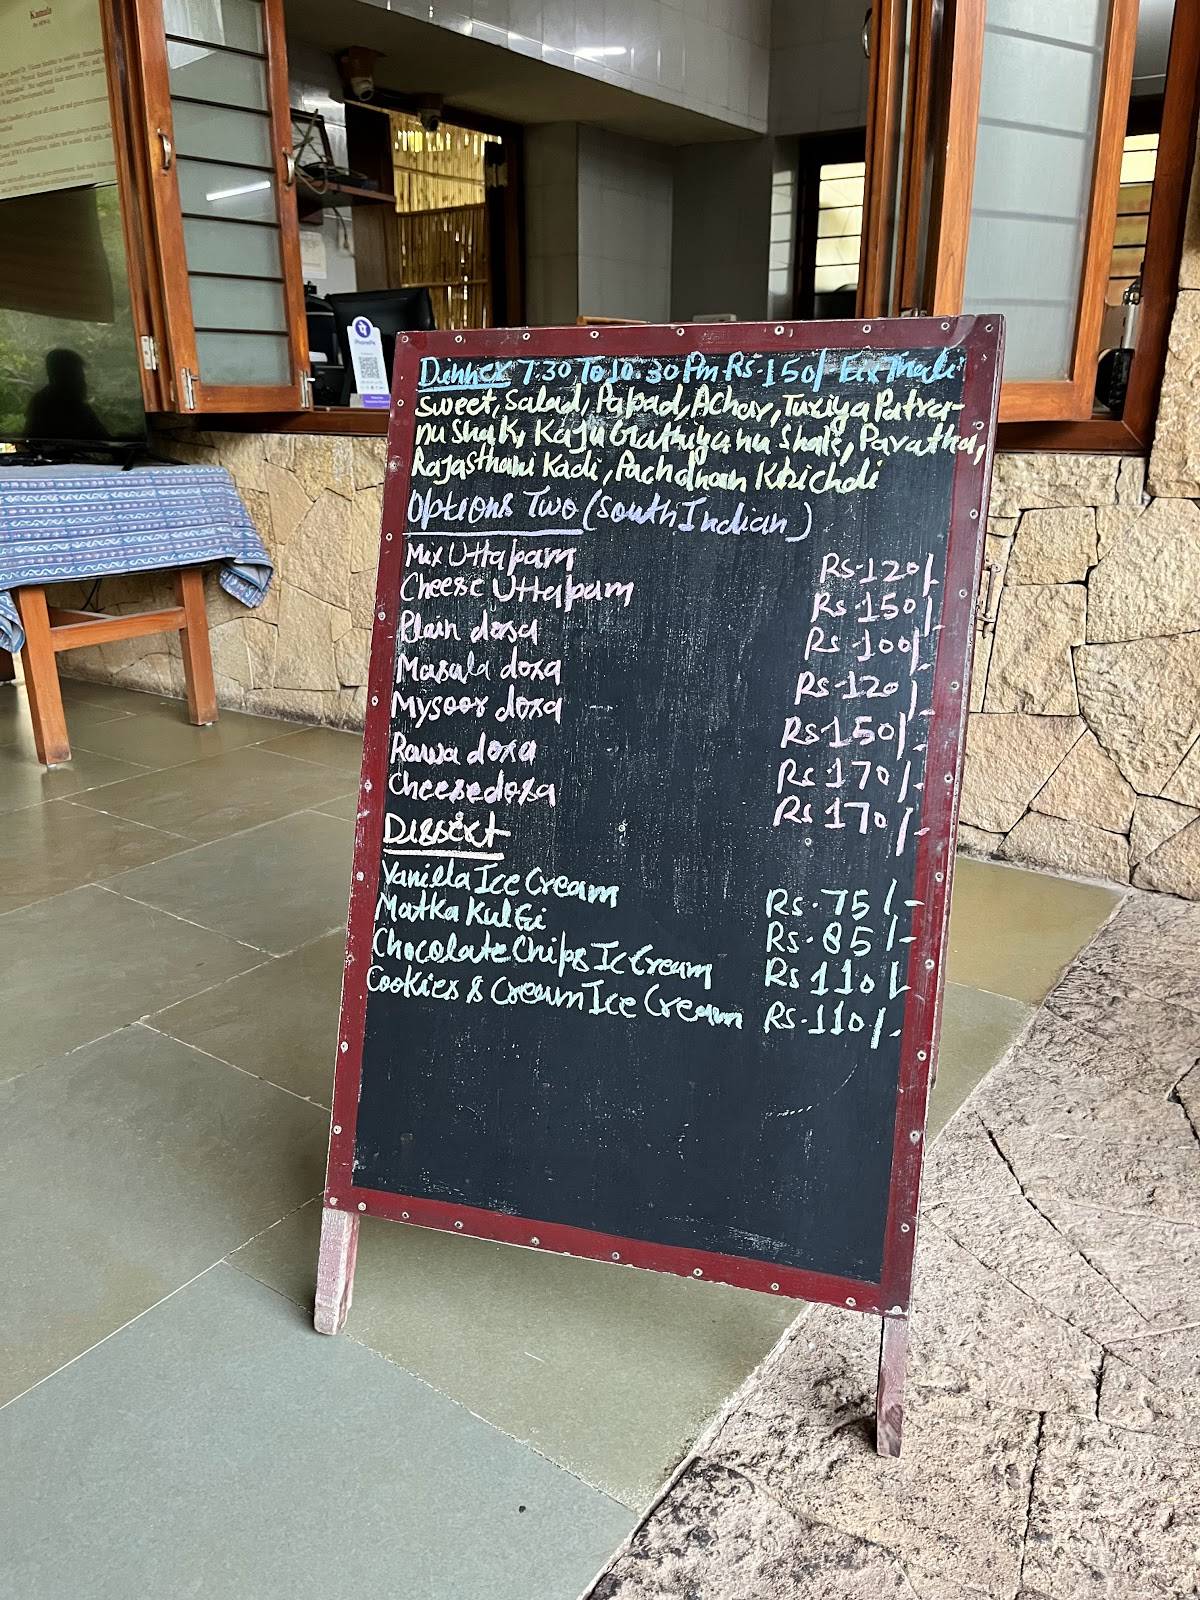 Kamala
PhonePe
Dinner 7.30 To 10.30 Pm Rs.150/ Fix Thali
Sweet, Salad, Papad, Achar, Turiya Patra-
nu Shak, Kaju Gathiya nu Shak, Paratha,
Rajasthani Kadi, Pachdhan Khichdi
Options Two (South Indian)
Mix Uttapam Rs.120/-
Cheese Uttapam Rs.150/-
Plain dosa Rs.100/-
Masala dosa Rs.120/-
Mysoor dosa Rs150/-
Rawa dosa Rs.170/-
Cheese dosa Rs.170/-
Dissert
Vanilla Ice Cream Rs.75/-
Matka Kulfi Rs.85/-
Chocolate Chips Ic Cream Rs110/-
Cookies & Cream Ice Cream Rs.110/-